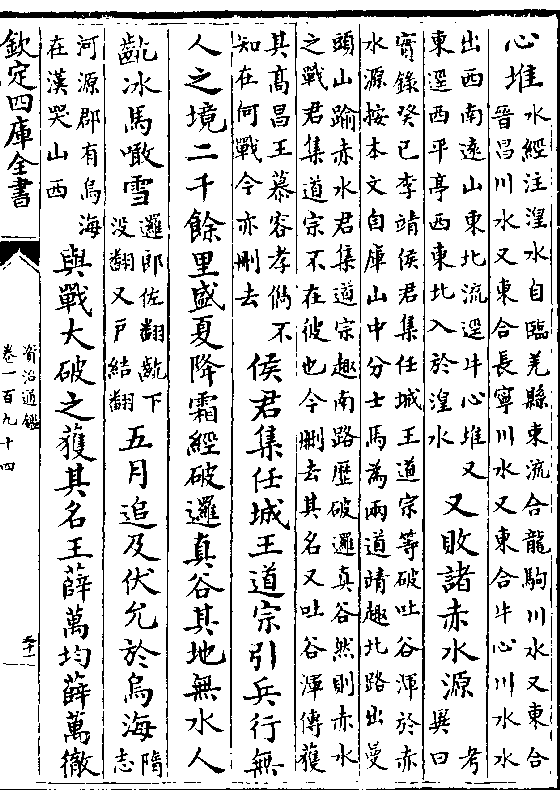 心堆水經注湟水自臨羌縣東流合龍駒川水又東合
晉昌川水又東合長寧川水又東合牛心川水水
出西南遠山東北流逕牛心堆又
東逕西平亭西東北入於湟水
又敗諸赤水源考
異曰
實錄癸巳李靖侯君集任城王道宗等破吐谷渾於赤
水源按本文自庫山中分士馬為兩道靖趣北路出曼
頭山踰赤水君集道宗趣南路歷破邏真谷然則赤水
之戰君集道宗不在彼也今刪去其名又吐谷渾傳獲
其髙昌王慕容孝㒞不
知在何戰今亦刪去
侯君集任城王道宗引兵行無
人之境二千餘里盛夏降霜經破邏真谷其地無水人
齕冰馬噉雪邏郎佐翻齕下
没翻又戸結翻
五月追及伏允於烏海隋
志
河源郡有烏海
在漢哭山西
與戰大破之獲其名王薛萬均薛萬徹
欽定四庫全書
資治通鑑
卷一百九十四